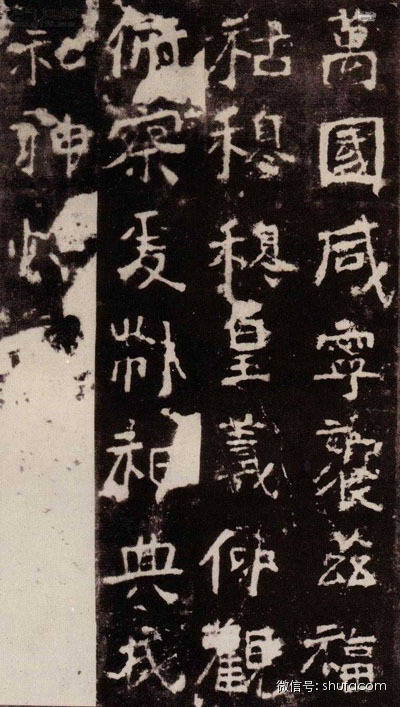 萬國咸寧襲茲福
祜穆穆皇羲仰觀
俯察爰制祀典
礼神
微信号: shufdcom